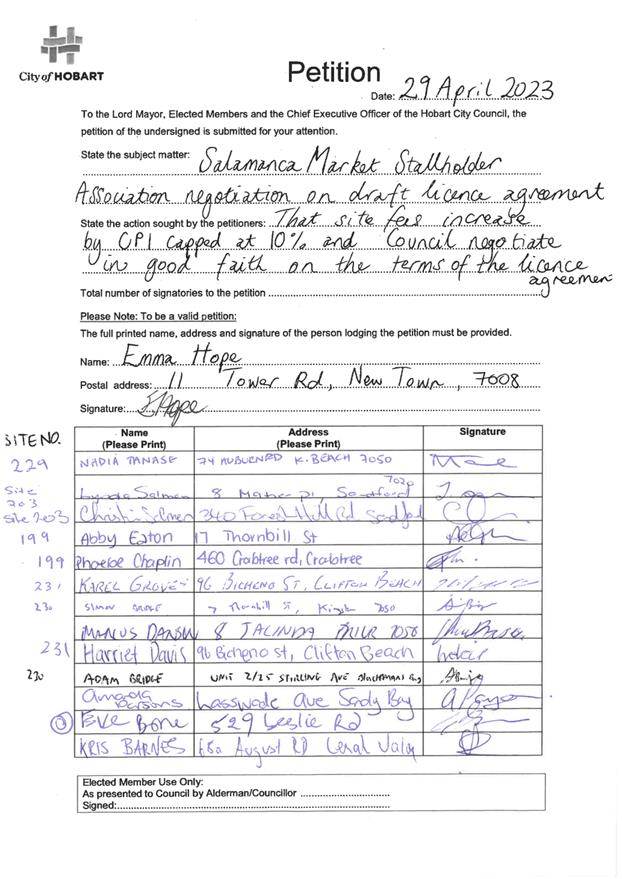 City of HOBART
Petition
Date: 29 April 2023
To the Lord Mayor, Elected Members and the Chief Executive Officer of the Hobart City Council, the
petition of the undersigned is submitted for your attention.
State the subject matter: Salamanca Market Stallholder
Association negotiation on draft licence agreement
State the action sought by the petitioners: That site fees increase
by CPI capped at 10% and Council negotiate
in good faith on the terms of the licence
agreemen
Total number of signatories to the petition
Please Note: To be a valid petition:
The full printed name, address and signature of the person lodging the petition must be provided.
Name: Emma Hope
Postal address: 11 Tower Rd, New Town, 7008
Signature: EHope
SITE NO. Name (Please Print) Address (Please Print) Signature
229 NADIA TANASE 74 K. BEACH 7050
Site 203 Salmon 8 Sandford 7020
Site 203 Salmon 340 Forest Hill Rd Sandford
199 Abby Eaton 17 Thornbill St
199 Phoebe Chaplin 460 Crabtree rd, Crabtree
231 KAREL GROVES 96 BICHENO ST, CLIFTON BEACH
230 SIMON BRIDGE 7 Thornbill St, 7050
MANUS 8 JACINDA 7050
231 Harriet Davis 96 Bicheno st, Clifton Beach
230 ADAM BRIDGE UNIT 2/25 STIRLING AVE
Amanda Parsons Lasswade Ave Sandy Bay
Eve Bone 529 Leslie Rd
KRIS BARNES 68a August RD Lenah Valley
Elected Member Use Only:
As presented to Council by Alderman/Councillor
Signed: